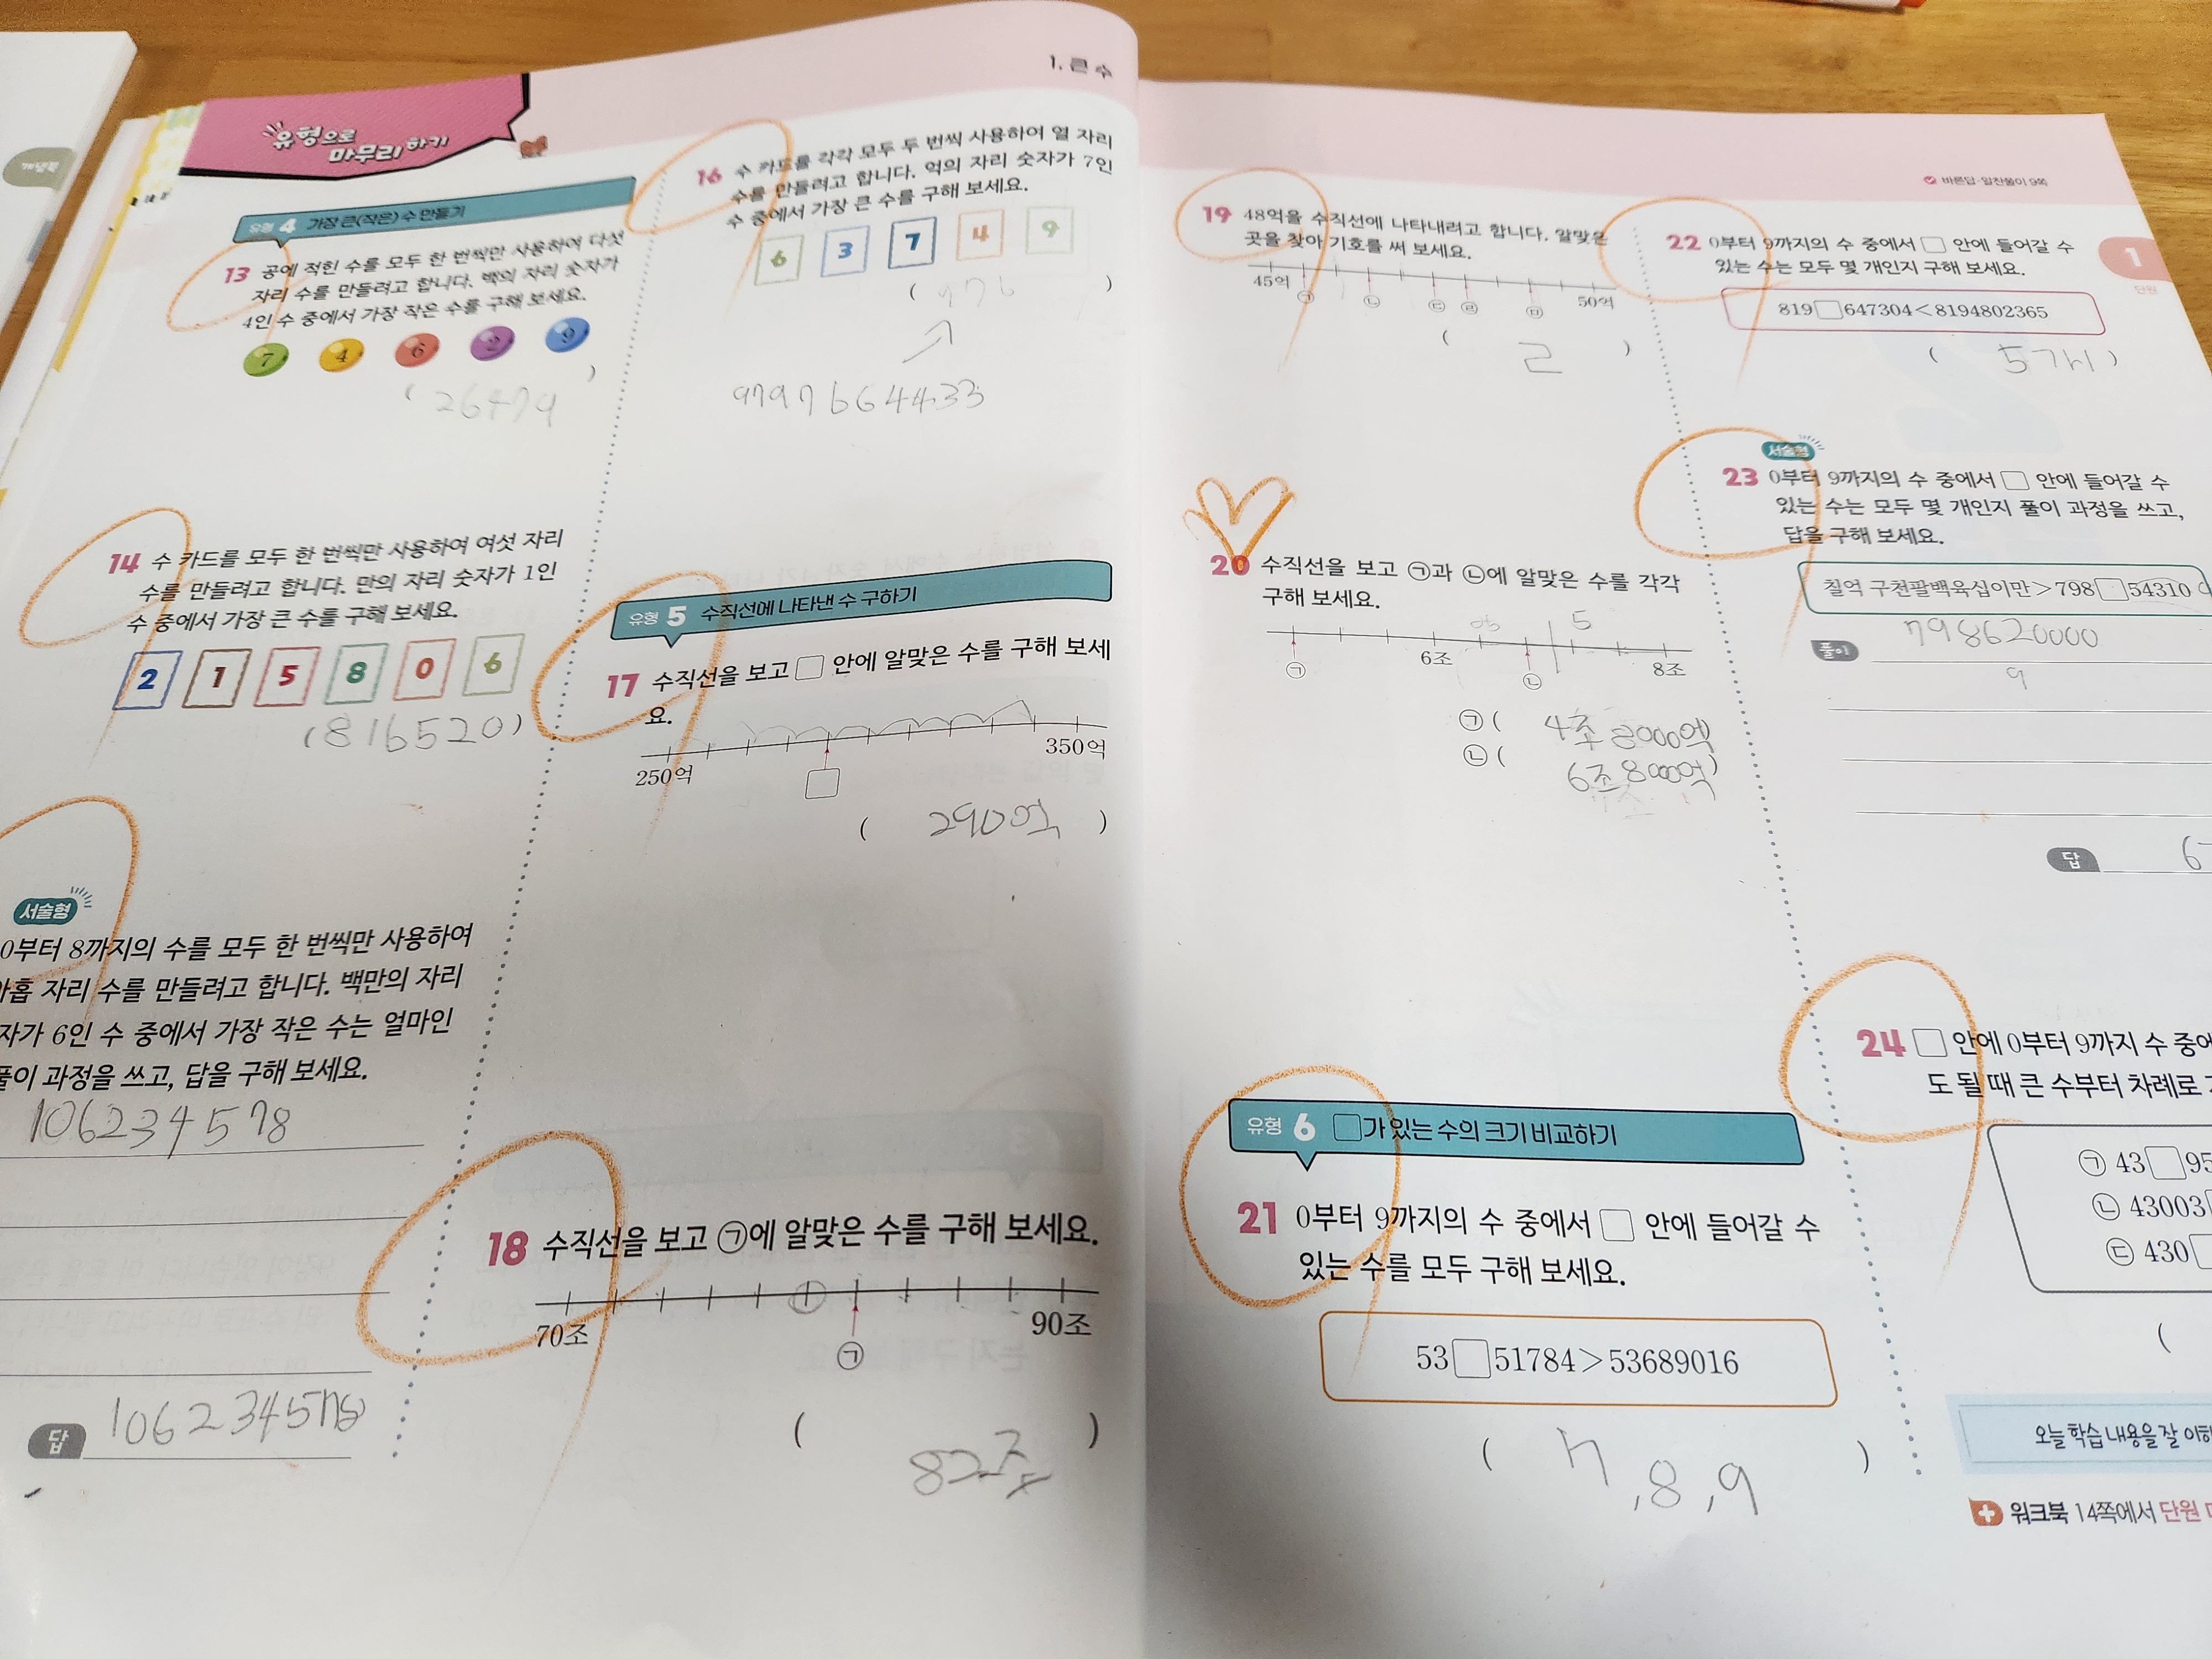 개념북
유형으로
마무리하기
1. 큰 수
유형 4 가장 큰(작은) 수 만들기
13 공에 적힌 수를 모두 한 번씩만 사용하여 다섯
자리 수를 만들려고 합니다. 백의 자리 숫자가
4인 수 중에서 가장 작은 수를 구해 보세요.
7 4 6 2 9
( 26479 )
14 수 카드를 모두 한 번씩만 사용하여 여섯 자리
수를 만들려고 합니다. 만의 자리 숫자가 1인
수 중에서 가장 큰 수를 구해 보세요.
2 1 5 8 0 6
(816520)
서술형
0부터 8까지의 수를 모두 한 번씩만 사용하여
아홉 자리 수를 만들려고 합니다. 백만의 자리
자가 6인 수 중에서 가장 작은 수는 얼마인
풀이 과정을 쓰고, 답을 구해 보세요.
106234578
답 106234578
16 수 카드를 각각 모두 두 번씩 사용하여 열 자리
수를 만들려고 합니다. 억의 자리 숫자가 7인
수 중에서 가장 큰 수를 구해 보세요.
6 3 7 4 9
( 976 )
9797664433
유형 5 수직선에 나타낸 수 구하기
17 수직선을 보고 □ 안에 알맞은 수를 구해 보세
요.
250억 □ 350억
( 290억 )
18 수직선을 보고 ㉠에 알맞은 수를 구해 보세요.
70조 ㉠ 90조
( 82조 )
바른답·알찬풀이 9쪽
19 48억을 수직선에 나타내려고 합니다. 알맞은
곳을 찾아 기호를 써 보세요.
45억 ㉠ ㉡ ㉢ ㉣ ㉤ 50억
( ㄹ )
20 수직선을 보고 ㉠과 ㉡에 알맞은 수를 각각
구해 보세요.
5
㉠ 6조 ㉡ 8조
㉠ ( 4조 8000억
㉡ ( 6조 8000억 )
유형 6 □가 있는 수의 크기 비교하기
21 0부터 9까지의 수 중에서 □ 안에 들어갈 수
있는 수를 모두 구해 보세요.
53□51784>53689016
( 7, 8, 9 )
22 0부터 9까지의 수 중에서 □ 안에 들어갈 수
있는 수는 모두 몇 개인지 구해 보세요.
1
단원
819□647304<8194802365
( 5개 )
서술형
23 0부터 9까지의 수 중에서 □ 안에 들어갈 수
있는 수는 모두 몇 개인지 풀이 과정을 쓰고,
답을 구해 보세요.
칠억 구천팔백육십이만>798□54310
풀이 798620000
9
답 6
24 □ 안에 0부터 9까지 수 중에
도 될 때 큰 수부터 차례로
㉠ 43□95
㉡ 43003
㉢ 430
(
오늘 학습 내용을 잘 이해
워크북 14쪽에서 단원